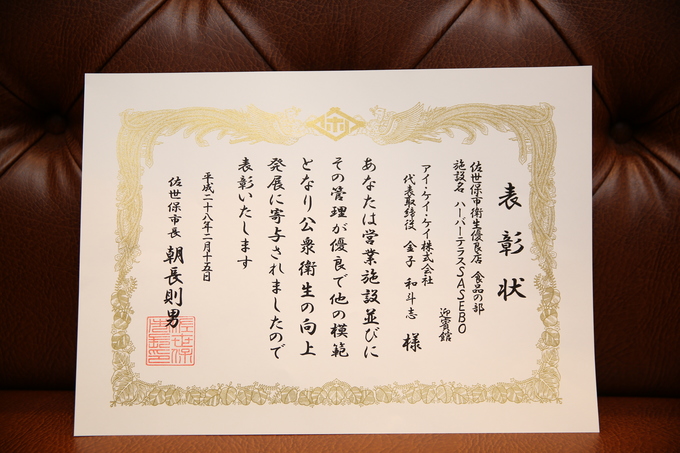 表彰状
佐世保市衛生優良店 食品の部
施設名 ハーバーテラスSASEBO
迎賓館
アイ・ケイ・ケイ株式会社
代表取締役 金子 和斗志 様
あなたは営業施設並びに
その管理が優良で他の模範
となり公衆衛生の向上
発展に寄与されましたので
表彰いたします
平成二十八年二月十五日
佐世保市長 朝長則男